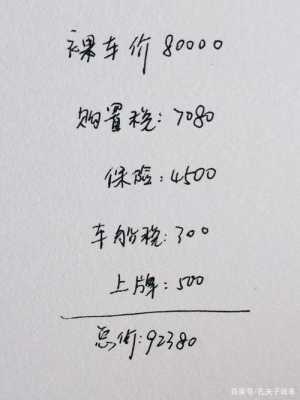 裸车价 80000
购置税: 7080
保险: 4500
车船税: 300
上牌: 500
总价: 92380